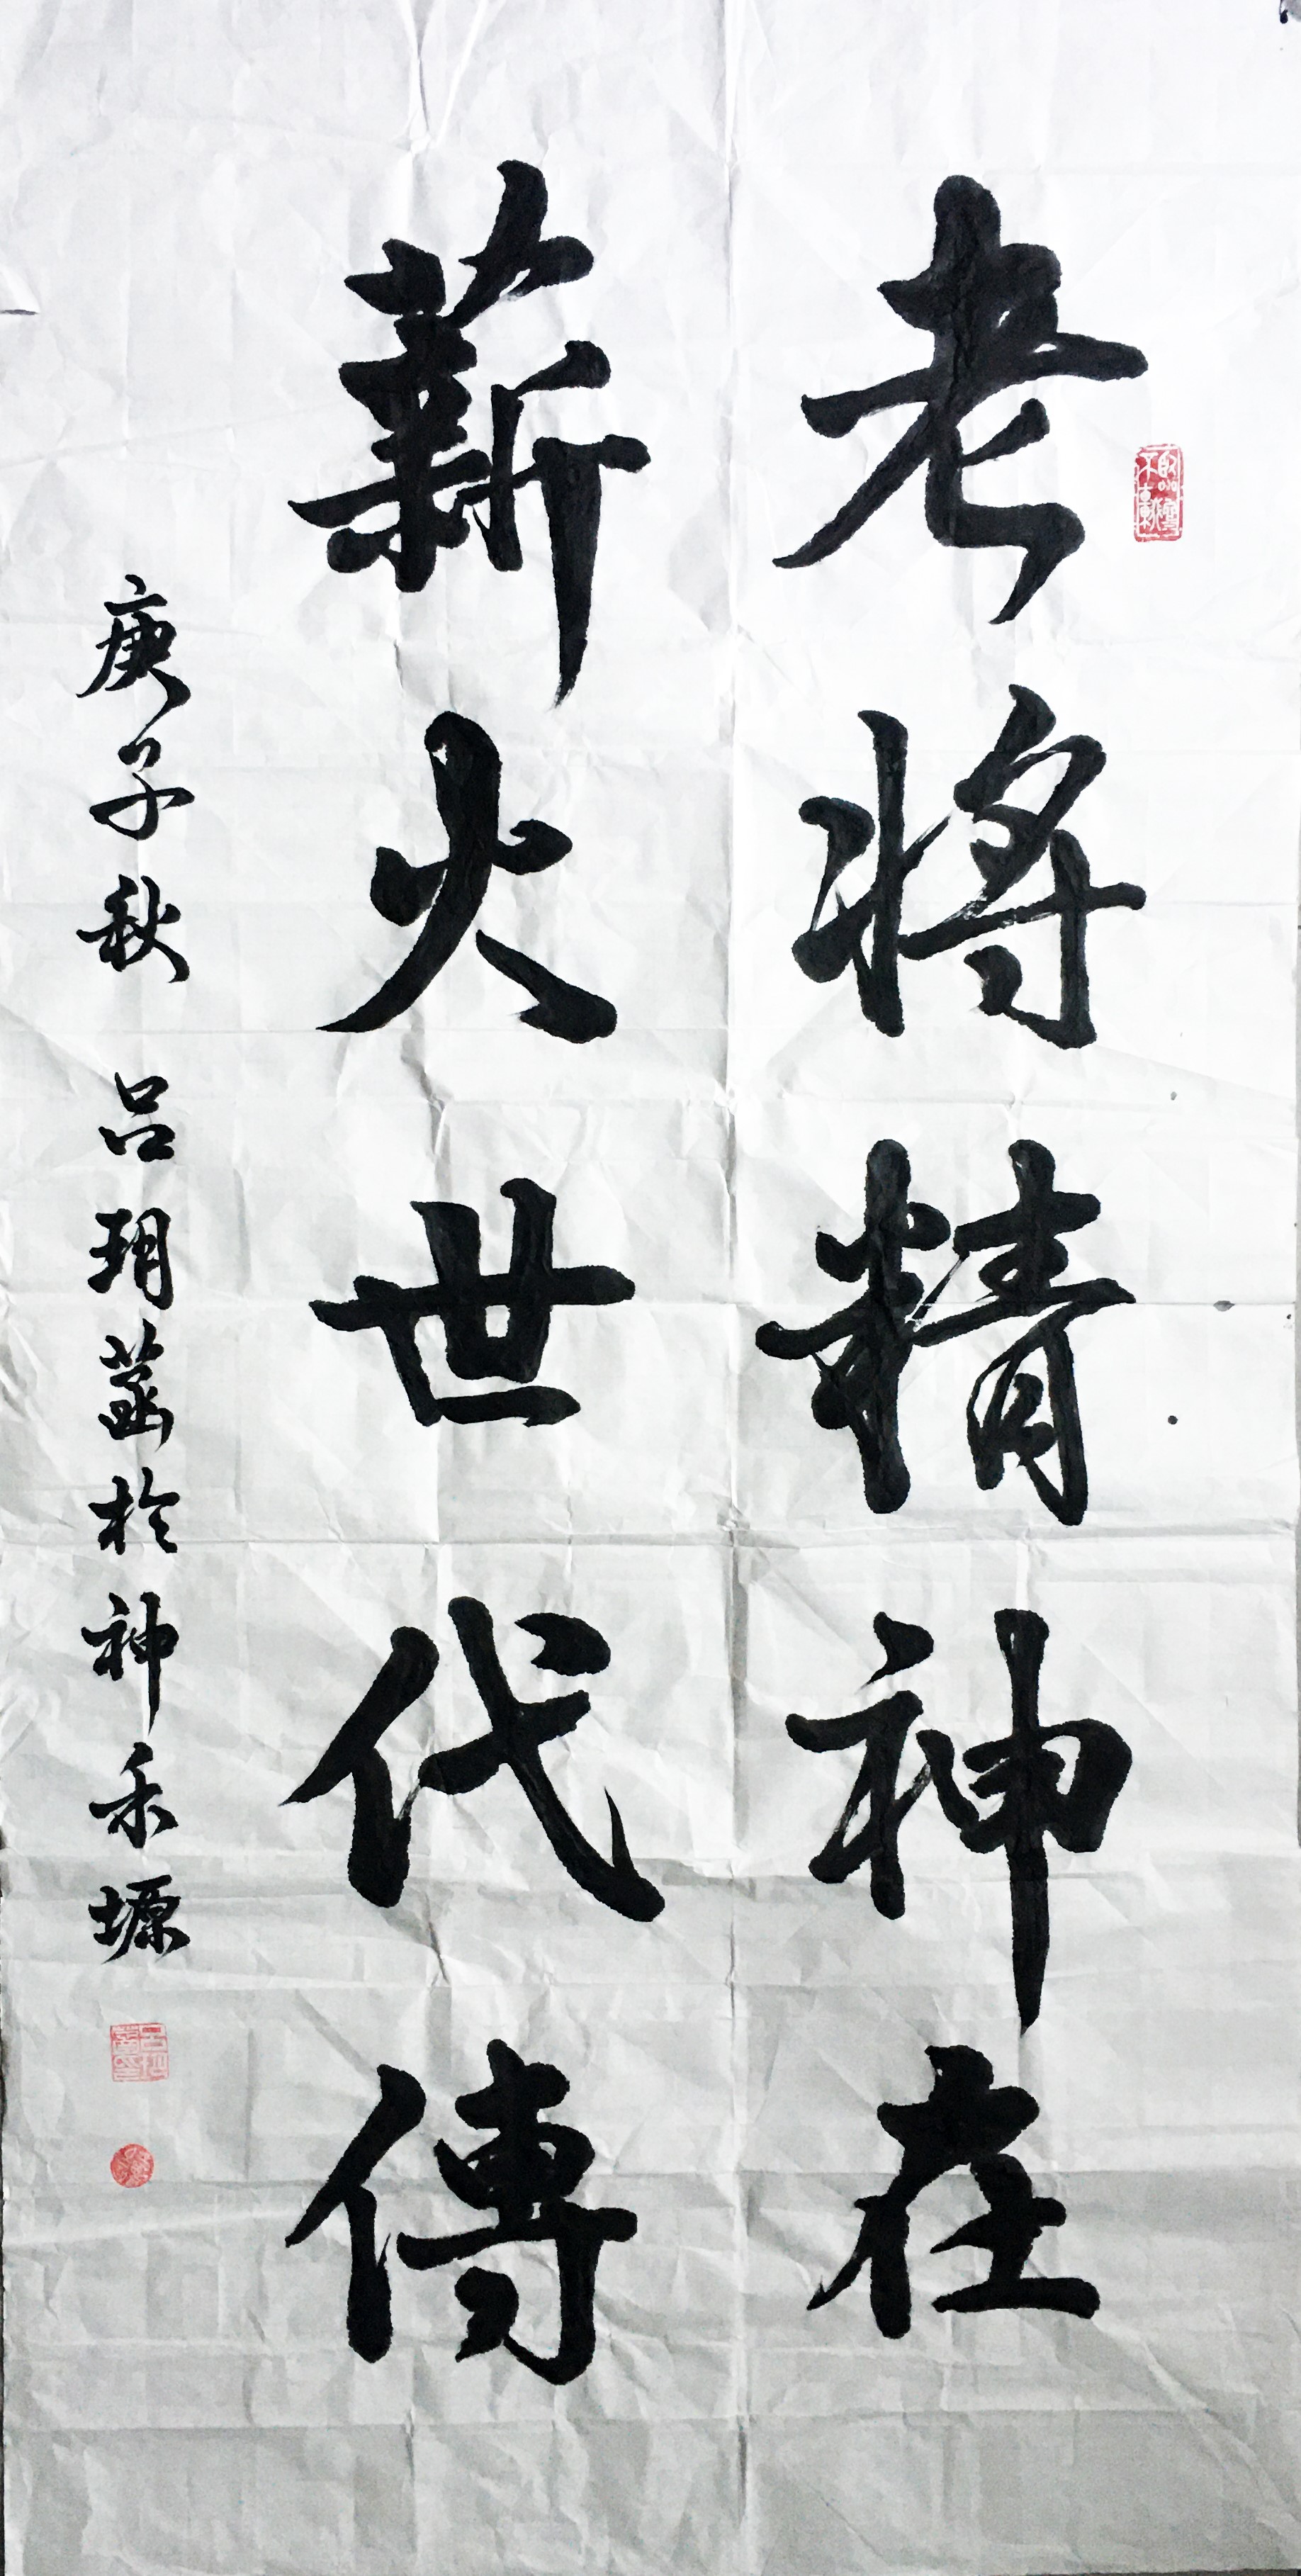 老将精神在
薪火世代傳
庚子秋 吕玥菡於神禾塬